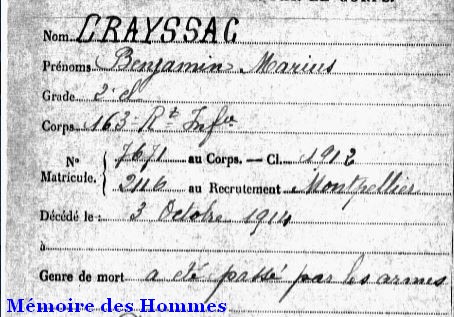 Nom CRAYSSAC
Prénoms Benjamin Marius
Grade 2e cl
Corps 163e Rt Infie
No 7671 au Corps. — Cl. 1912
Matricule. 2116 au Recrutement Montpellier
Décédé le : 3 Octobre 1914
à
Genre de mort a été passé par les armes
Mémoire des Hommes